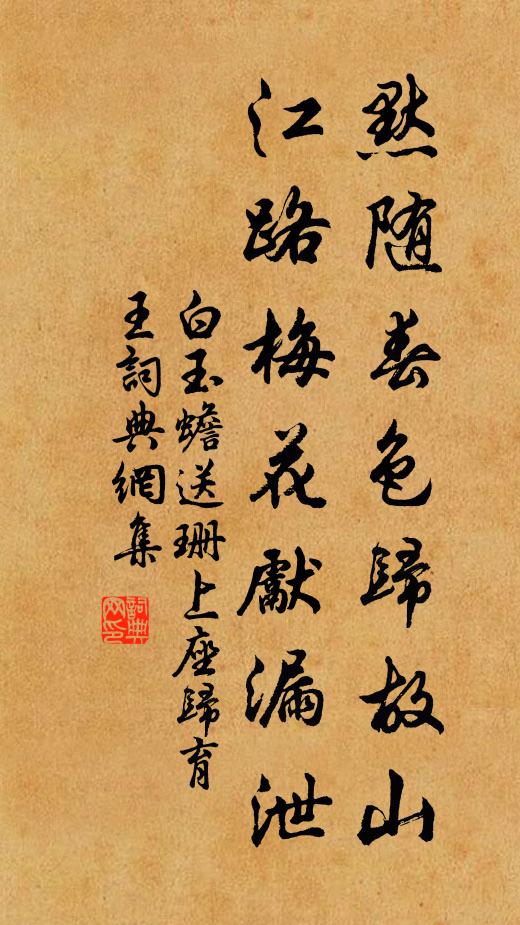 默随春色歸故山
江路梅花獻漏泄
白玉蟾送珊上座歸育
王詞典網集
詞典网印